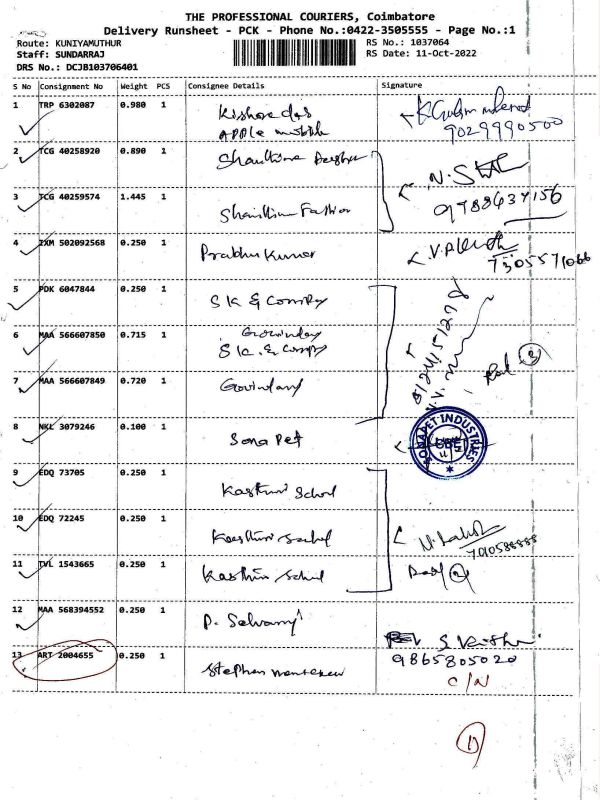 THE PROFESSIONAL COURIERS, Coimbatore
Delivery Runsheet - PCK - Phone No.:0422-3505555 - Page No.:1
Route: KUNIYAMUTHUR
Staff: SUNDARRAJ
DRS No.: DCJB103706401
RS No.: 1037064
RS Date: 11-Oct-2022
S No Consignment No Weight PCS Consignee Details Signature
1 TRP 6302087 0.980 1
Kishore das
Apple mobile
9029990500
2 TCG 40258920 0.890 1
3 TCG 40259574 1.445 1 Fashion
9788637156
4 IXM 502092568 0.250 1 Prabhu Kumar
73055 71066
5 PDK 6047844 0.250 1 S K & Compy
6 MAA 566607850 0.715 1
S K. & Compy
8124151278
7 MAA 566607849 0.720 1
8 NKL 3079246 0.100 1 Sona Pet
SONAPET INDUSTRIES
9 EDQ 73705 0.250 1 Kasthuri School
10 EDQ 72245 0.250 1 Kasthuri School
7010588888
11 TVL 1543665 0.250 1 Kasthuri School
12 MAA 568394552 0.250 1 P. Selvamy
13 ART 2004655 0.250 1 Stephen
9865805020
C/N